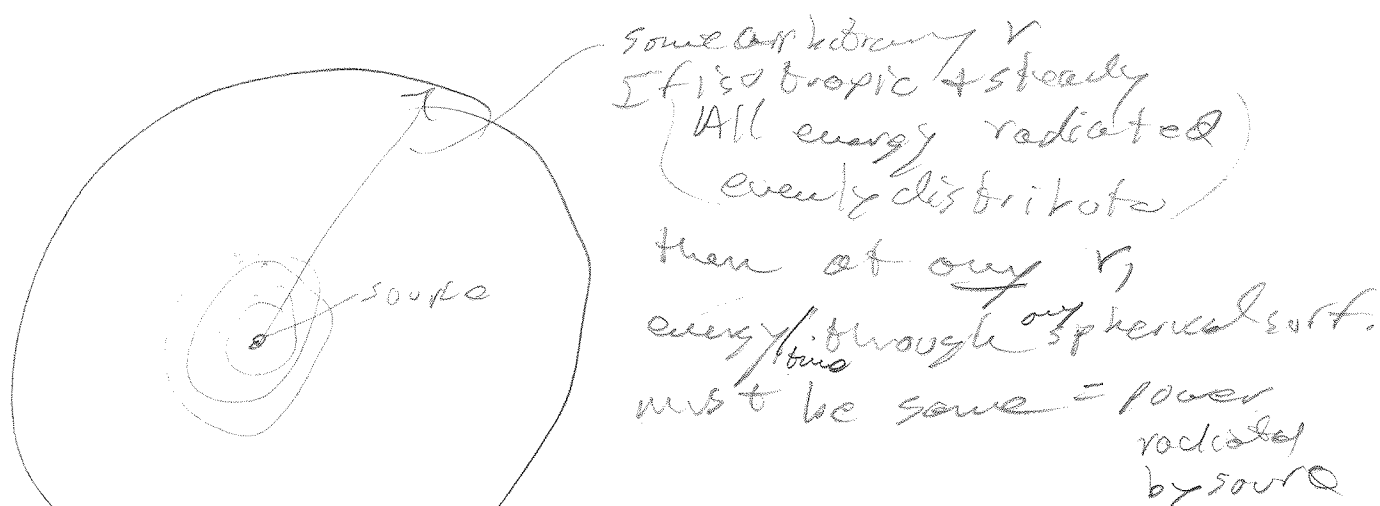 some arbitrary r
If isotropic + steady
(All energy radiated
evenly distribute)
then at any r,
source
energy/time through any spherical surf.
must be same = power
radiated
by source